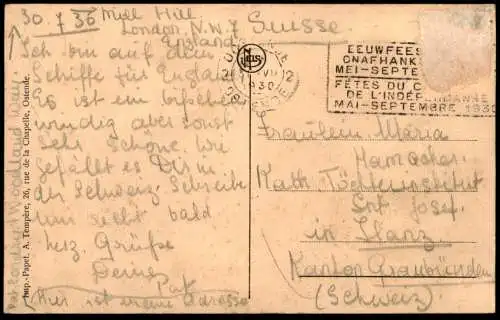 30. 7 36 Mill Hill
London. N.W. 7
England
Suisse
Ich bin auf dem
Schiffe für England
Es ist ein bischen
windig aber sonst
sehr schöne. Wie
gefällt es Dir in
der Schweiz. Schreibe
mir selbst bald
herz. Grüße
Deine
Pat
(Hier ist meine Adresse
Woodland
Imp.-Papet. A. Tempère, 26, rue de la Chapelle, Ostende.
nels
OOSTENDE
OSTENDE
1930
EEUWFEES
ONAFHANK
MEI-SEPTE
FÊTES DU C
DE L'INDÉPENDANCE
MAI-SEPTEMBRE 193
Fräulein Maria
Kath Töchterinstitut
Snt Josef.
in Ilanz.
Kanton Graubünden
(Schweiz)